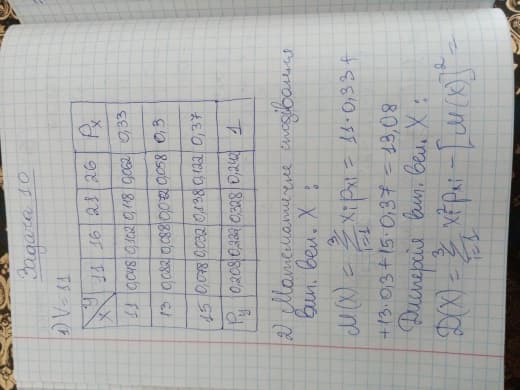 Задача 10
1) V = 11
X У 11 16 21 26 Pₓ
11 0,048 0,102 0,118 0,062 0,33
13 0,082 0,088 0,072 0,058 0,3
15 0,078 0,032 0,138 0,122 0,37
Pᵧ 0,208 0,222 0,328 0,242 1
2) Математичне сподівання
вип. вел. X :
M(X) = 3 Σ i=1 xᵢ pₓᵢ = 11·0,33 +
+13·0,3+15·0,37 = 13,08
Дисперсія вип. вел. X :
D(X) = 3 Σ i=1 xᵢ² pₓᵢ - [M(X)]² =